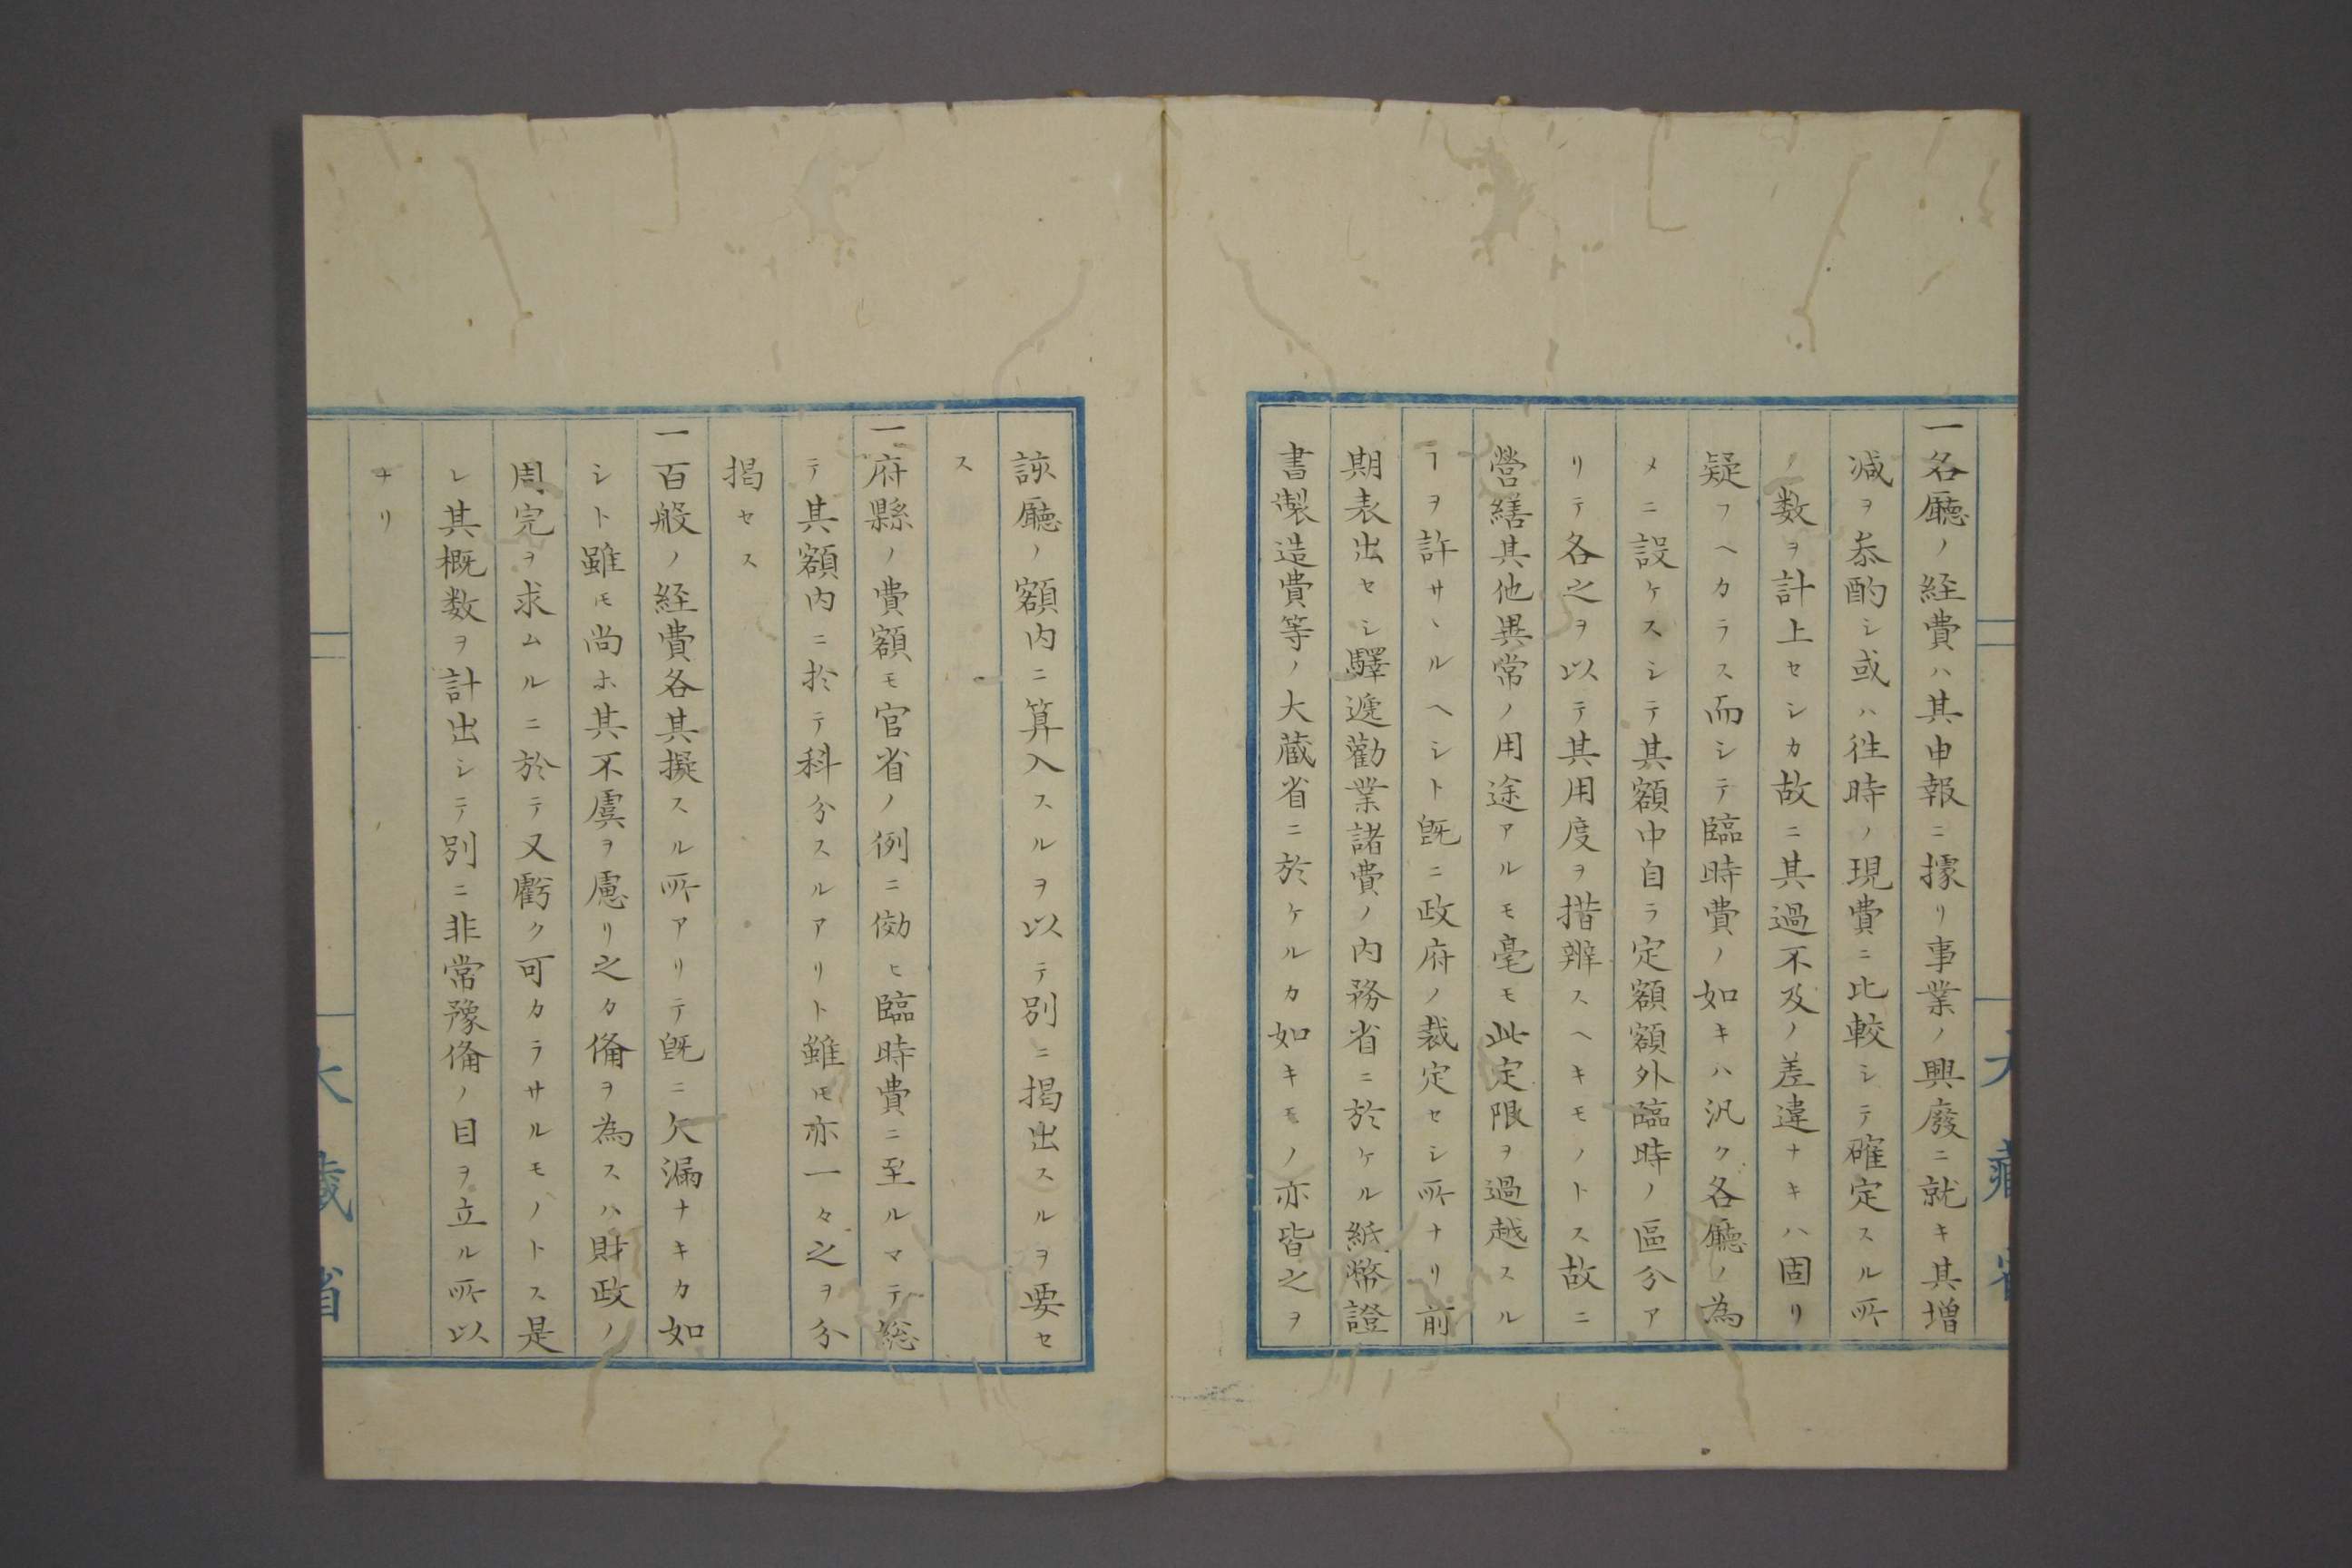 一各廳ノ経費ハ其申報ニ據リ事業ノ興廢ニ就キ其増
減ヲ叅酌シ或ハ徃時ノ現費ニ比較シテ確定スル所
ノ数ヲ計上セシカ故ニ其過不及ノ差違ナキハ固リ
疑フヘカラス而シテ臨時費ノ如キハ汎ク各廳ノ為
メニ設ケスシテ其額中自ラ定額額外臨時ノ區分ア
リテ各之ヲ以テ其用度ヲ措辨スヘキモノトス故ニ
營繕其他異常ノ用途アルモ毫モ此定限ヲ過越スル
ヿヲ許サヽルヘシト既ニ政府ノ裁定セシ所ナリ前
期表出セシ驛遞勸業諸費ノ内務省ニ於ケル紙幣證
書製造費等ノ大蔵省ニ於ケルカ如キモノ亦皆之ヲ
該廳ノ額内ニ算入スルヲ以テ別ニ掲出スルヲ要セ
ス
一府縣ノ費額モ官省ノ例ニ傚ヒ臨時費ニ至ルマテ総
テ其額内ニ於テ科分スルアリト雖𪜈亦一々之ヲ分
掲セス
一百般ノ経費各其擬スル所アリテ既ニ欠漏ナキカ如
シト雖𪜈尚ホ其不虞ヲ慮リ之カ備ヲ為スハ財政ノ
周完ヲ求ムルニ於テ又虧ク可カラサルモノトス是
レ其概数ヲ計出シテ別ニ非常豫備ノ目ヲ立ル所以
ナリ
大藏省